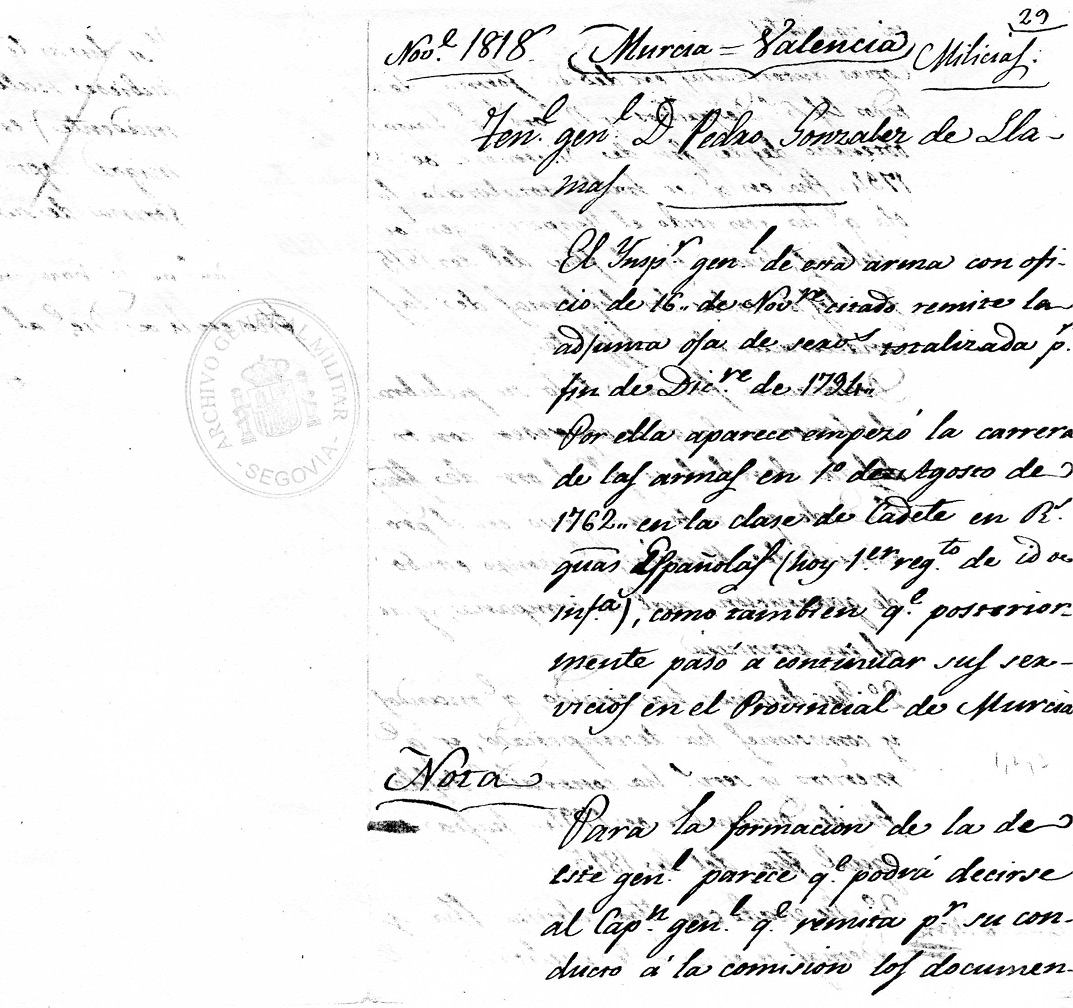 29
Novᵉ. 1818. Murcia = Valencia Milicias.
Tenᵉ. genˡ. D. Pedro Gonzalez de Lla-
mas
El Ynspʳ. genˡ. de esa arma con ofi-
cio de 16.. de Novʳᵉ citado remite la
adjunta oja de servˢ totalizada pʳ.
fin de Dicʳᵉ de 1794..
Por ella aparece empezó la carrera
de las armas en 1º de Agosto de
1762.. en la clase de Cadete en Rˢ.
guas Españolas (hoy 1ᵉʳ regᵗᵒ. de id de
infᵃ), como tambien qᵉ. posterior-
mente pasó a continuar sus ser-
vicios en el Provincial de Murcia
Nota
Para la formacion de la de
este genˡ. parece qᵉ. podrá decirse
al Capⁿ. genˡ. qᵉ. remita pʳ su con-
ducto á la comision los documen-
ARCHIVO GENERAL MILITAR
- SEGOVIA -